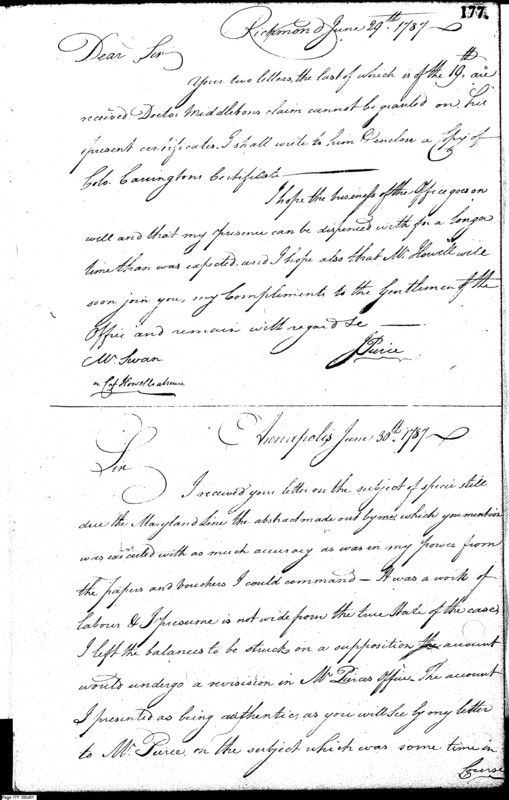 177.
Richmond June 29th. 1787
Dear Sir
Your two letters, the last of which is of the 19th. are
received. Doctor Middletons claim cannot be granted on his
present certificates. I shall write to him & enclose a Copy of
Colo. Carringtons Certificate
I hope the business of the Office goes on
well and that my presence can be dispensed with for a longer
time than was expected. and I hope also that Mr. Howell will
soon join you, my Compliments to the Gentlemen of the
Office and remain with regard &c
Mr. Swan
J Pierce
in Capt Howells absence
Annapolis June 30th. 1787
Sir
I received your letter on the subject of specie still
due the Maryland Line the abstract made out by me, which you mention
was executed with as much accuracy as was in my power from
the papers and vouchers I could command — It was a work of
labour & I presume is not wide from the true state of the case,
I left the balances to be struck on a supposition the account
would undergo a revision in Mr. Pierces Office. The account
I presented as being authentic, as you will see by my letter
to Mr. Pierce, on the subject which was some time in
Course
Page 177 DDJ01